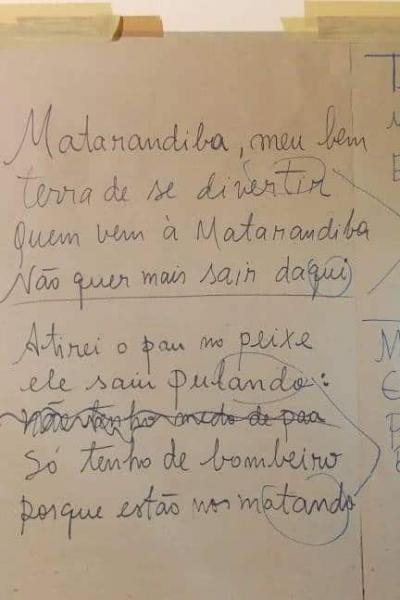 Matarandiba, meu bem
terra de se divertir
Quem vem à Matarandiba
Não quer mais sair daqui
Atirei o pau no peixe
ele saiu pulando:
não tenho medo de pau
Só tenho de bombeiro
porque estão nos matando